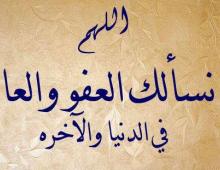 اللهم
نسألك العفو والعا
في الدنيا والآخره